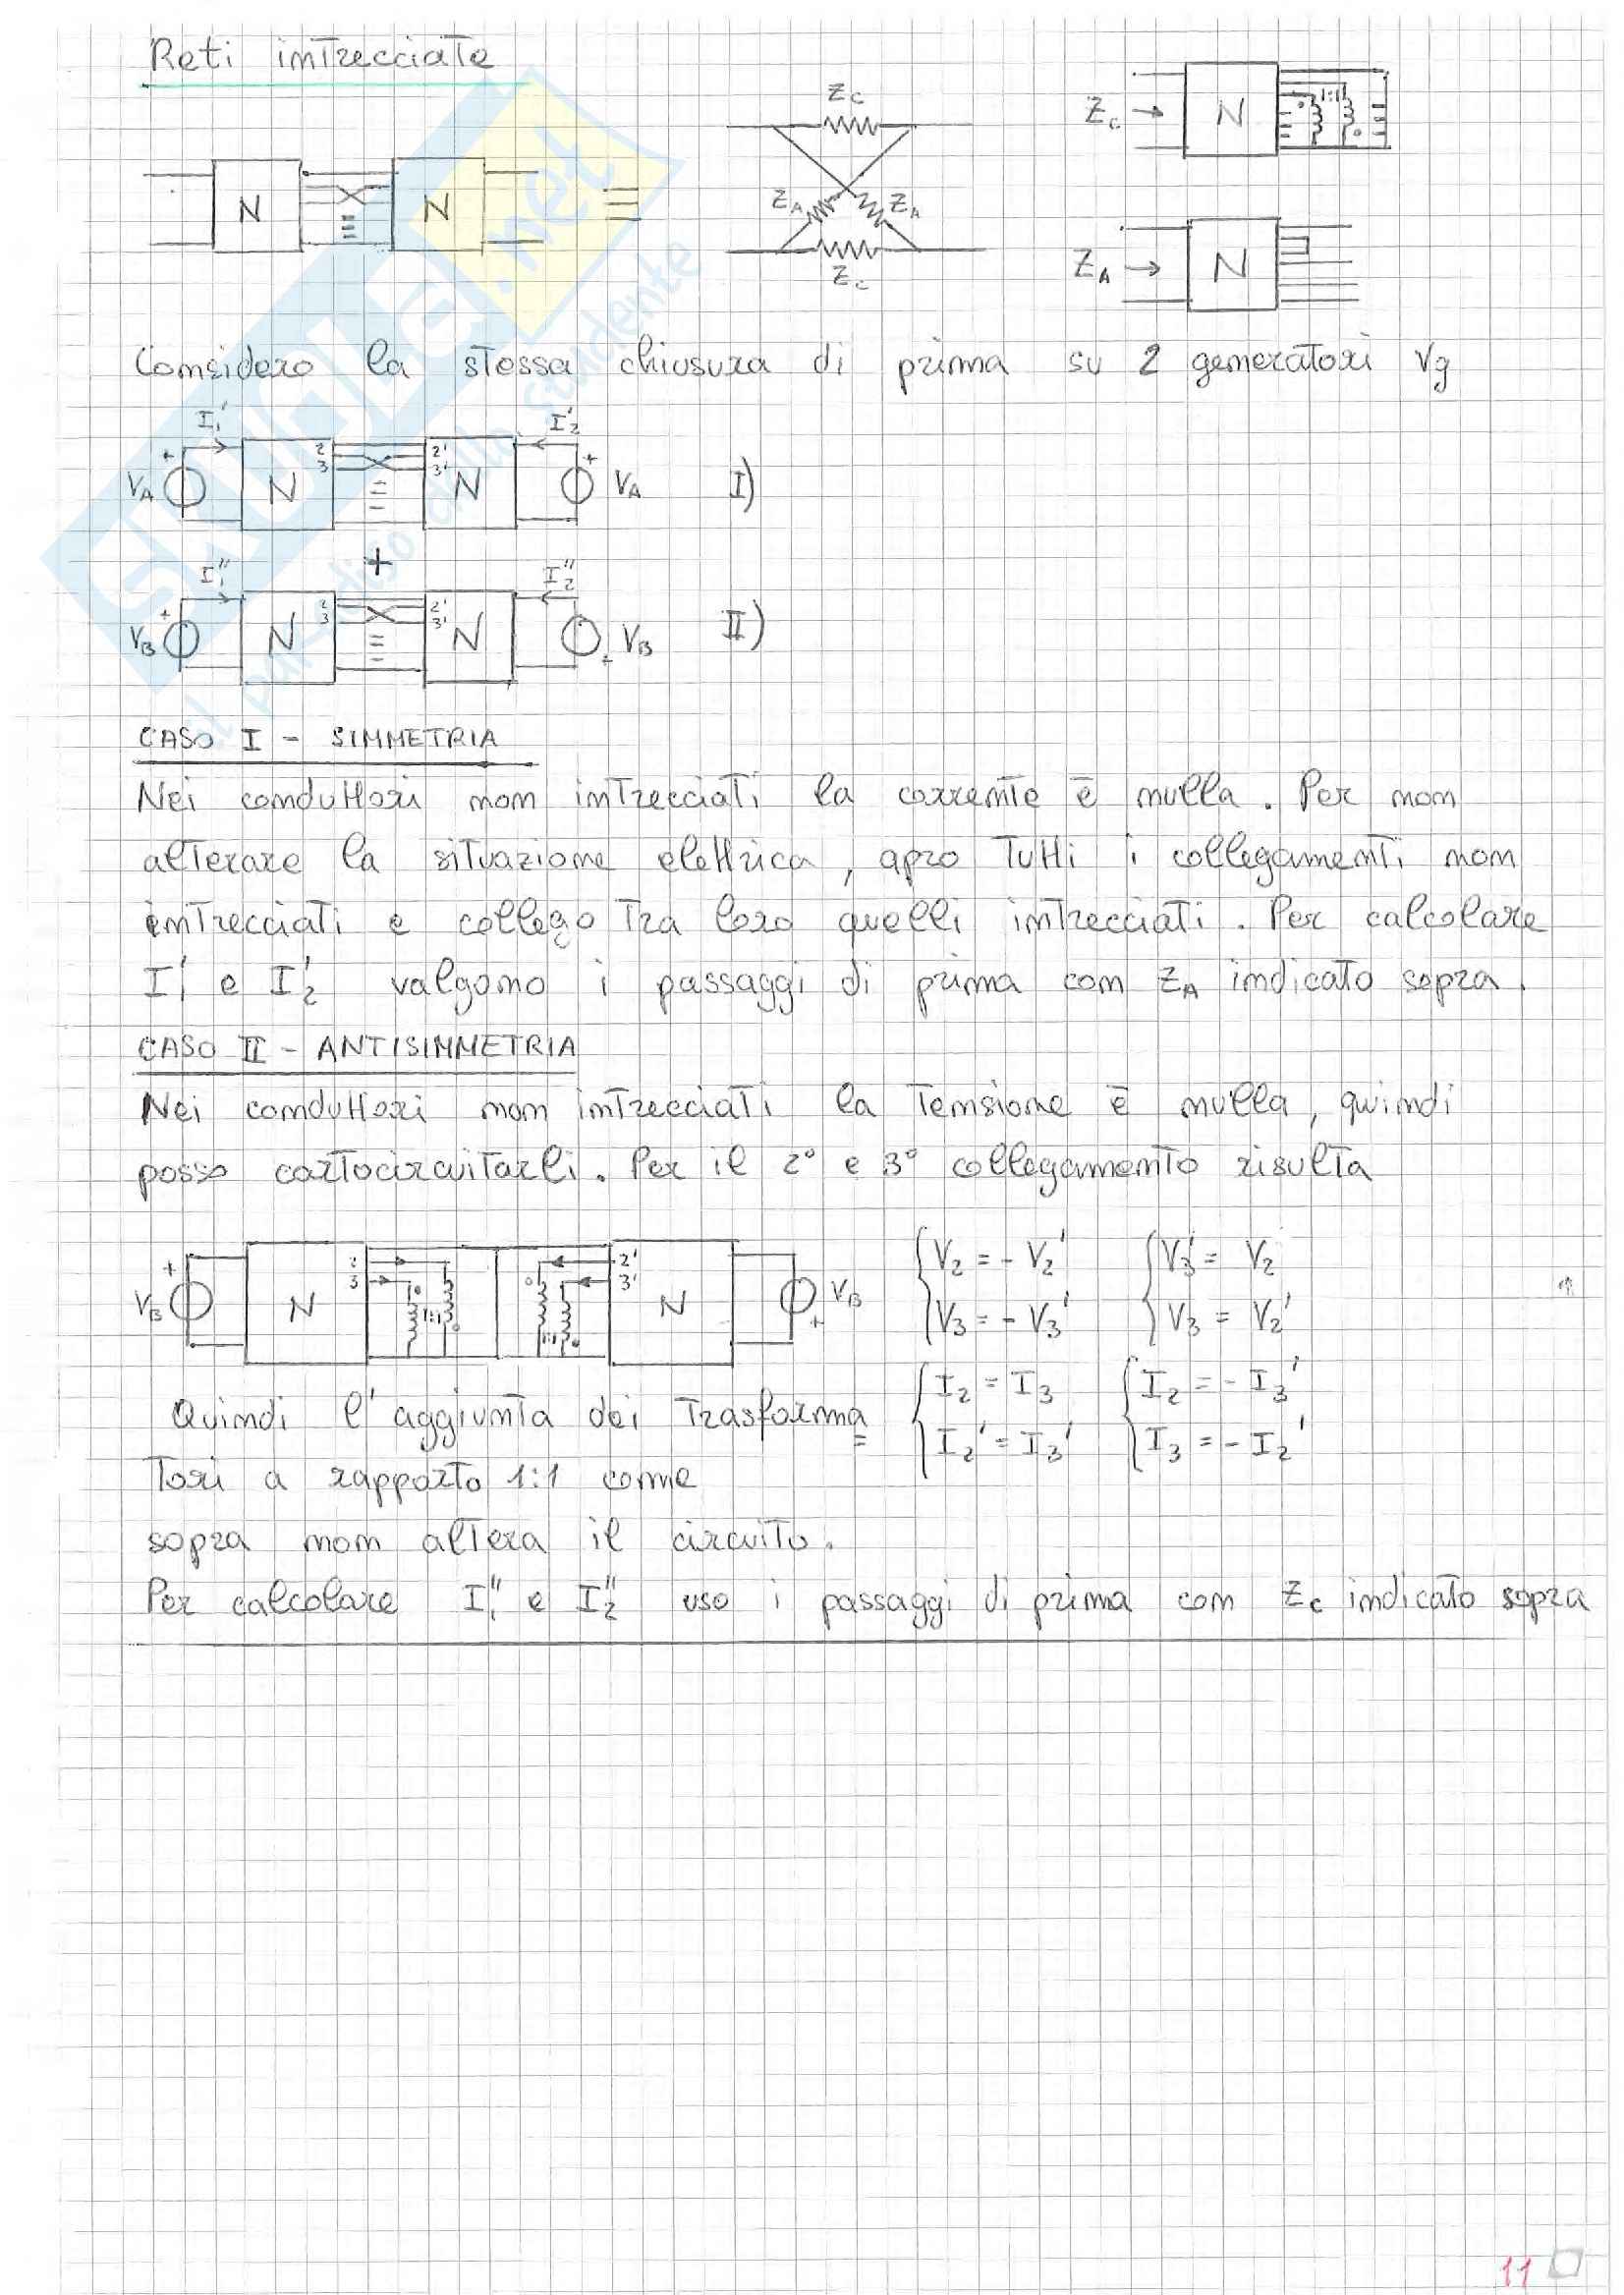 Reti intrecciate
N N
Zc
ZA ZA
Zc
Zc → N 1:1
ZA → N
Considero la stessa chiusura di prima su 2 generatori Vg
I1' I2'
VA + N 2 3 2' 3' N + VA I)
+
I1'' I2''
VB + N 2 3 2' 3' N + VB II)
CASO I - SIMMETRIA
Nei conduttori non intrecciati la corrente è nulla. Per non
alterare la situazione elettrica, apro tutti i collegamenti non
intrecciati e collego tra loro quelli intrecciati. Per calcolare
I1' e I2' valgono i passaggi di prima con ZA indicato sopra.
CASO II - ANTISIMMETRIA
Nei conduttori non intrecciati la tensione è nulla, quindi
posso cortocircuitarli. Per il 2° e 3° collegamento risulta
VB + N 2 3 1:1 1:1 2' 3' N + VB
V2 = - V2' V3' = V2
V3 = - V3' V3 = V2'
I2 = I3 I2 = - I3'
I2' = I3' I3 = - I2'
Quindi l'aggiunta dei trasforma=
tori a rapporto 1:1 come
sopra non altera il circuito.
Per calcolare I1'' e I2'' uso i passaggi di prima con Zc indicato sopra
11
SKUOLA.net
il paradiso dello studente